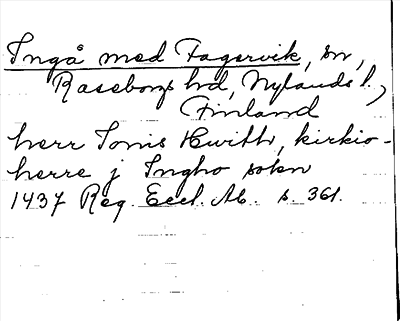 Ingå med Fagervik, sn,
Raseborgs hd, Nylands l.,
Finland
herr Jönis Hwith, kirkio-
herre j Ingho sokn
1437 Reg. Eccl. Ab. s. 361.